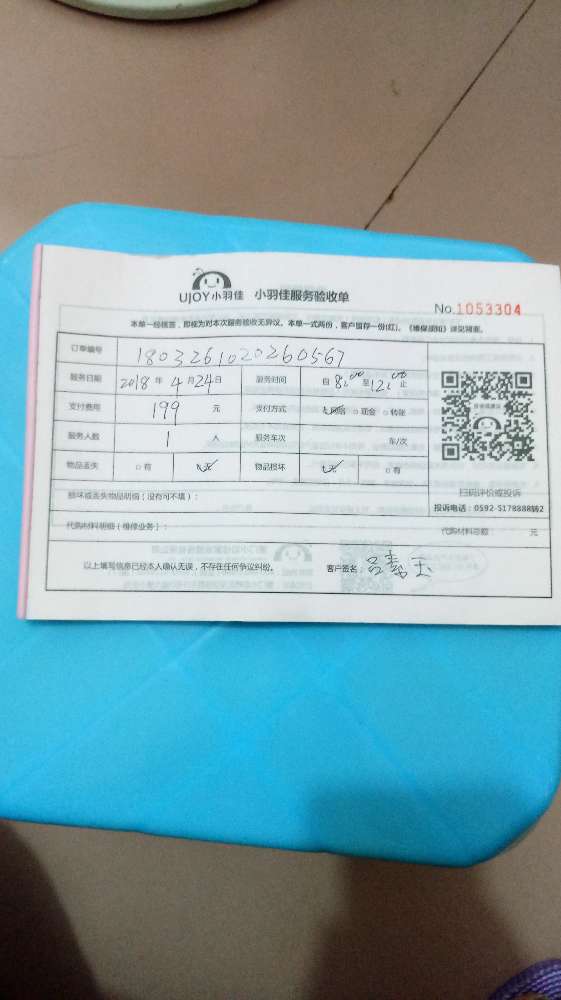 UJOY小羽佳 小羽佳服务验收单
No.1053304
本单一经核签，即视为对本次服务验收无异议。本单一式两份，客户留存一份(红)。《维保须知》详见背面。
订单编号 1803261020260567
服务日期 2018年4月24日 服务时间 自8:00至12:00止
支付费用 199元 支付方式 ☑网络 □现金 □转账
服务人数 1人 服务车次 车/次
物品丢失 □有 ☑无 物品损坏 ☑无 □有
扫码评价或投诉
损坏或丢失物品明细（没有可不填）：
投诉电话：0592-5178888转2
代购材料明细（维修业务）： 代购材料总额： 元
以上填写信息已经本人确认无误，不存在任何争议纠纷。 客户签名：吕素玉